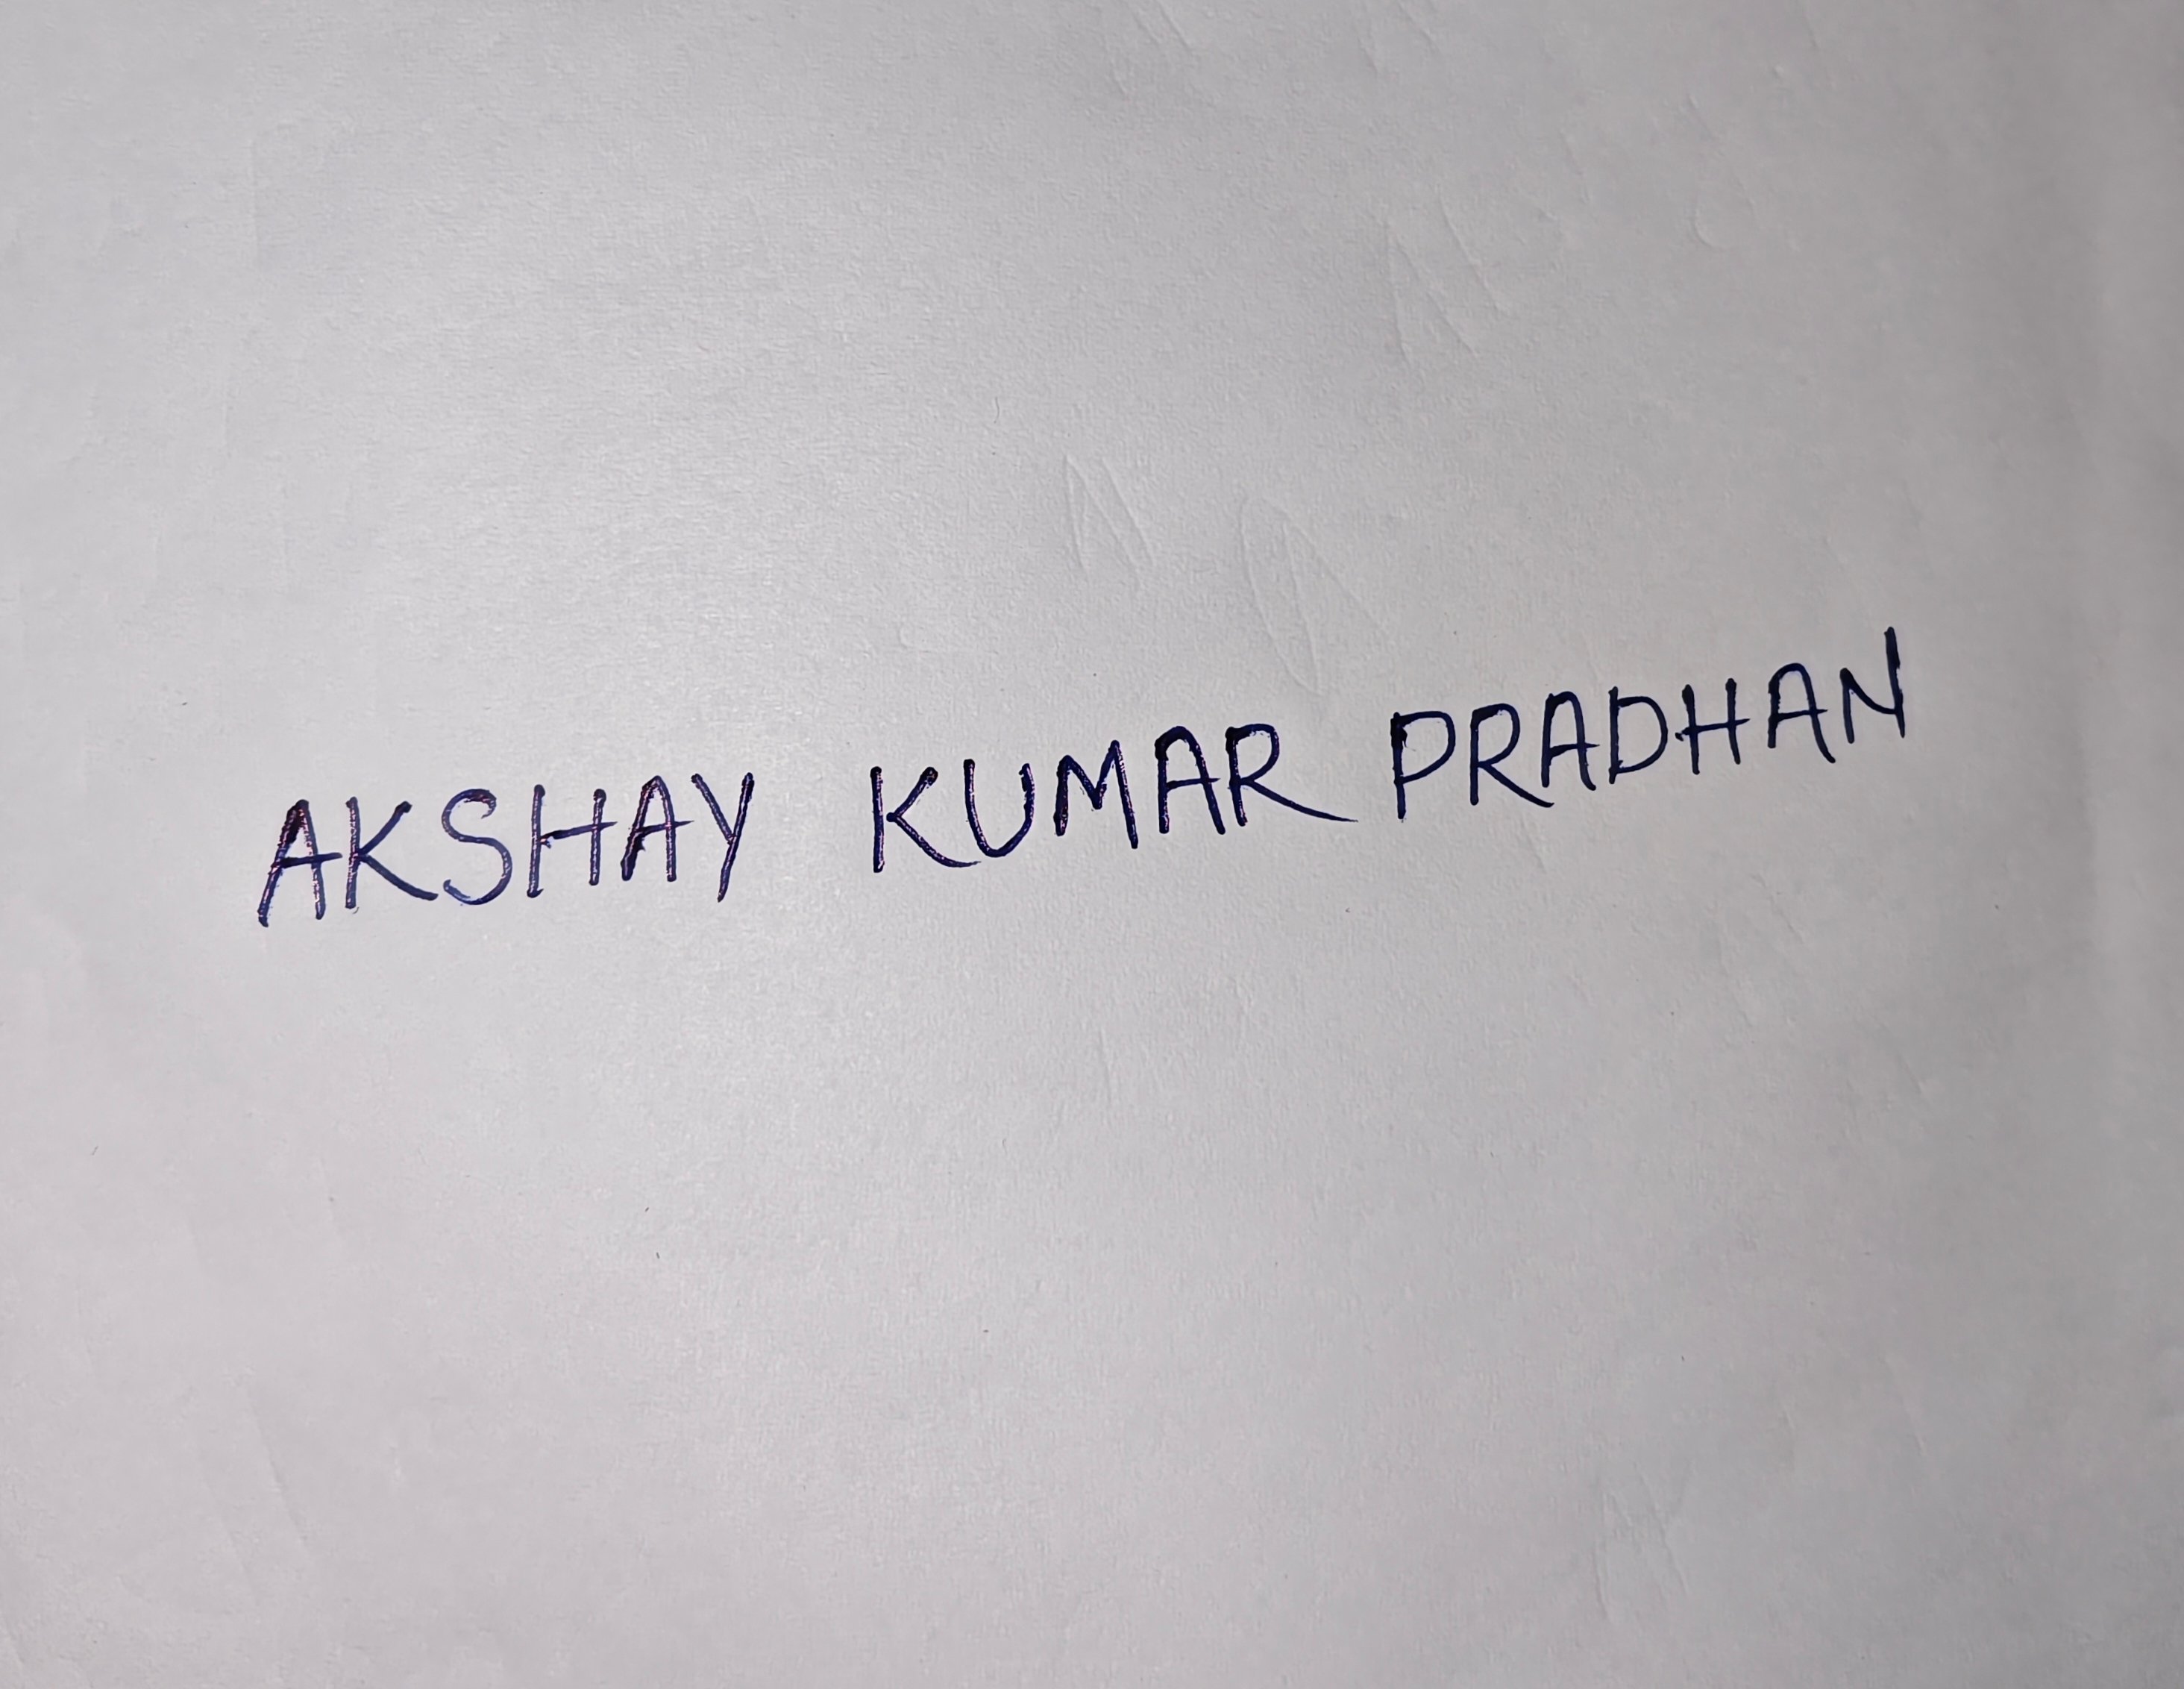 AKSHAY KUMAR PRADHAN